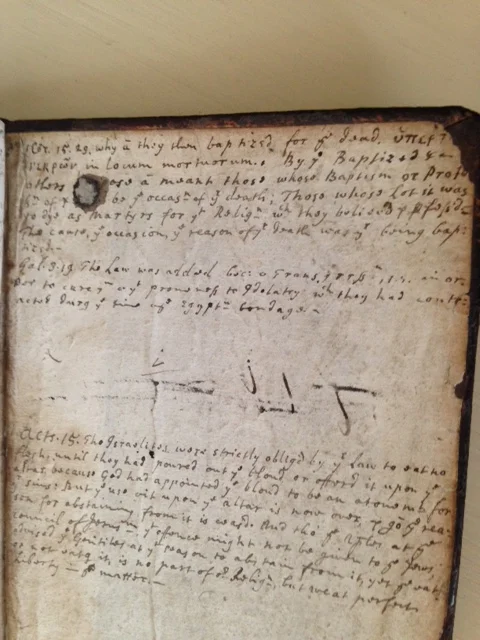 1 Cor. 15. 29. why ā they then baptized for yᵉ dead. ὑπὲρ τ
νεκρῶν in locum mortuorum. By yᵉ Baptizd
others ā meant those whose Baptism or Prof
be yᵉ occasⁿ of yᵉ death; Those whose Lot it was
to dye as Martyrs for yᵉ Religⁿ wᶜʰ they believed &
The cause, yᵉ occasion, yᵉ reason of yᵉ death was yᵉ being bap-
tized.
Gal. 3. 19. The Law was added bec: o Trans. in or-
der to cure yᵐ o yᵉ proneness to Idolatry wᶜʰ they had contr-
acted durg yᵉ time o yᵉ Egyptⁿ bondage.
Acts. 15. The Israelites were strictly obliged by yᵉ Law to eat no
flesh, until they had poured out yᵉ blood or offerd it upon yᵉ
altar, because God had appointed yᵉ blood to be an atonemt for
yᵉ sins. But yᵉ use o it upon yᵉ altar is now over, & so yᵉ rea-
son for abstaining from it is ceasd. And tho' yᵉ Aples at yᵉ
council of Jerusⁿ yᵗ offence might not be given to yᵉ Jews,
advised yᵉ Gentiles at yᵗ season to abstain from it, yet yᵉ eatg
or not eatg it is no part of oʳ Religⁿ, but we at perfect
liberty — yᵉ matter. —